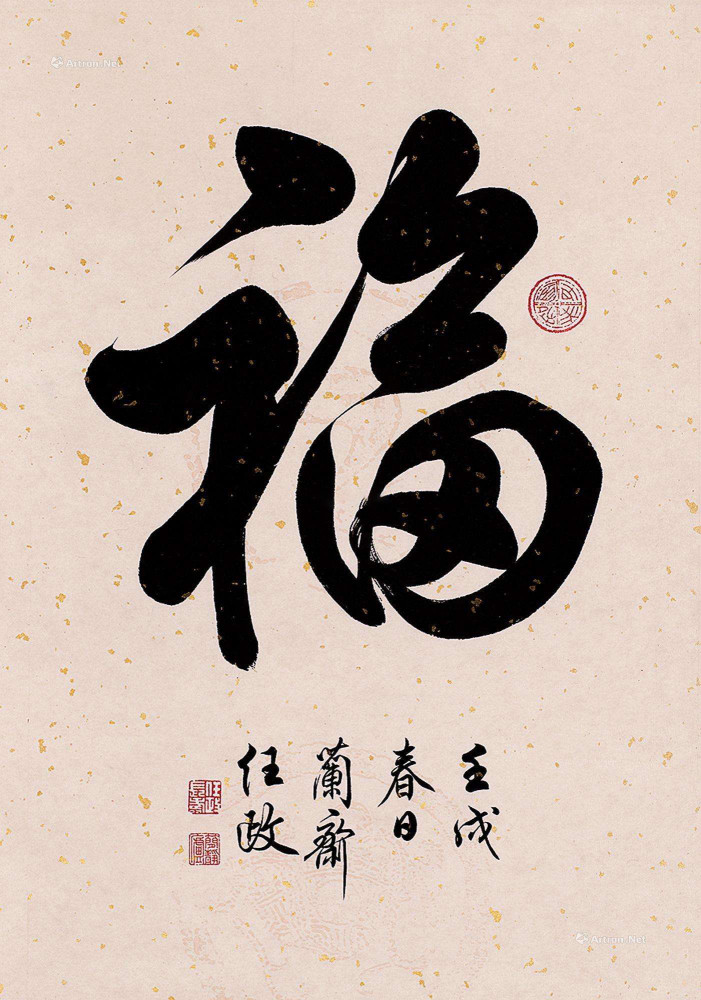 福
壬戌
春日
蘭齋
任政
Artron.Net
Artron.Net